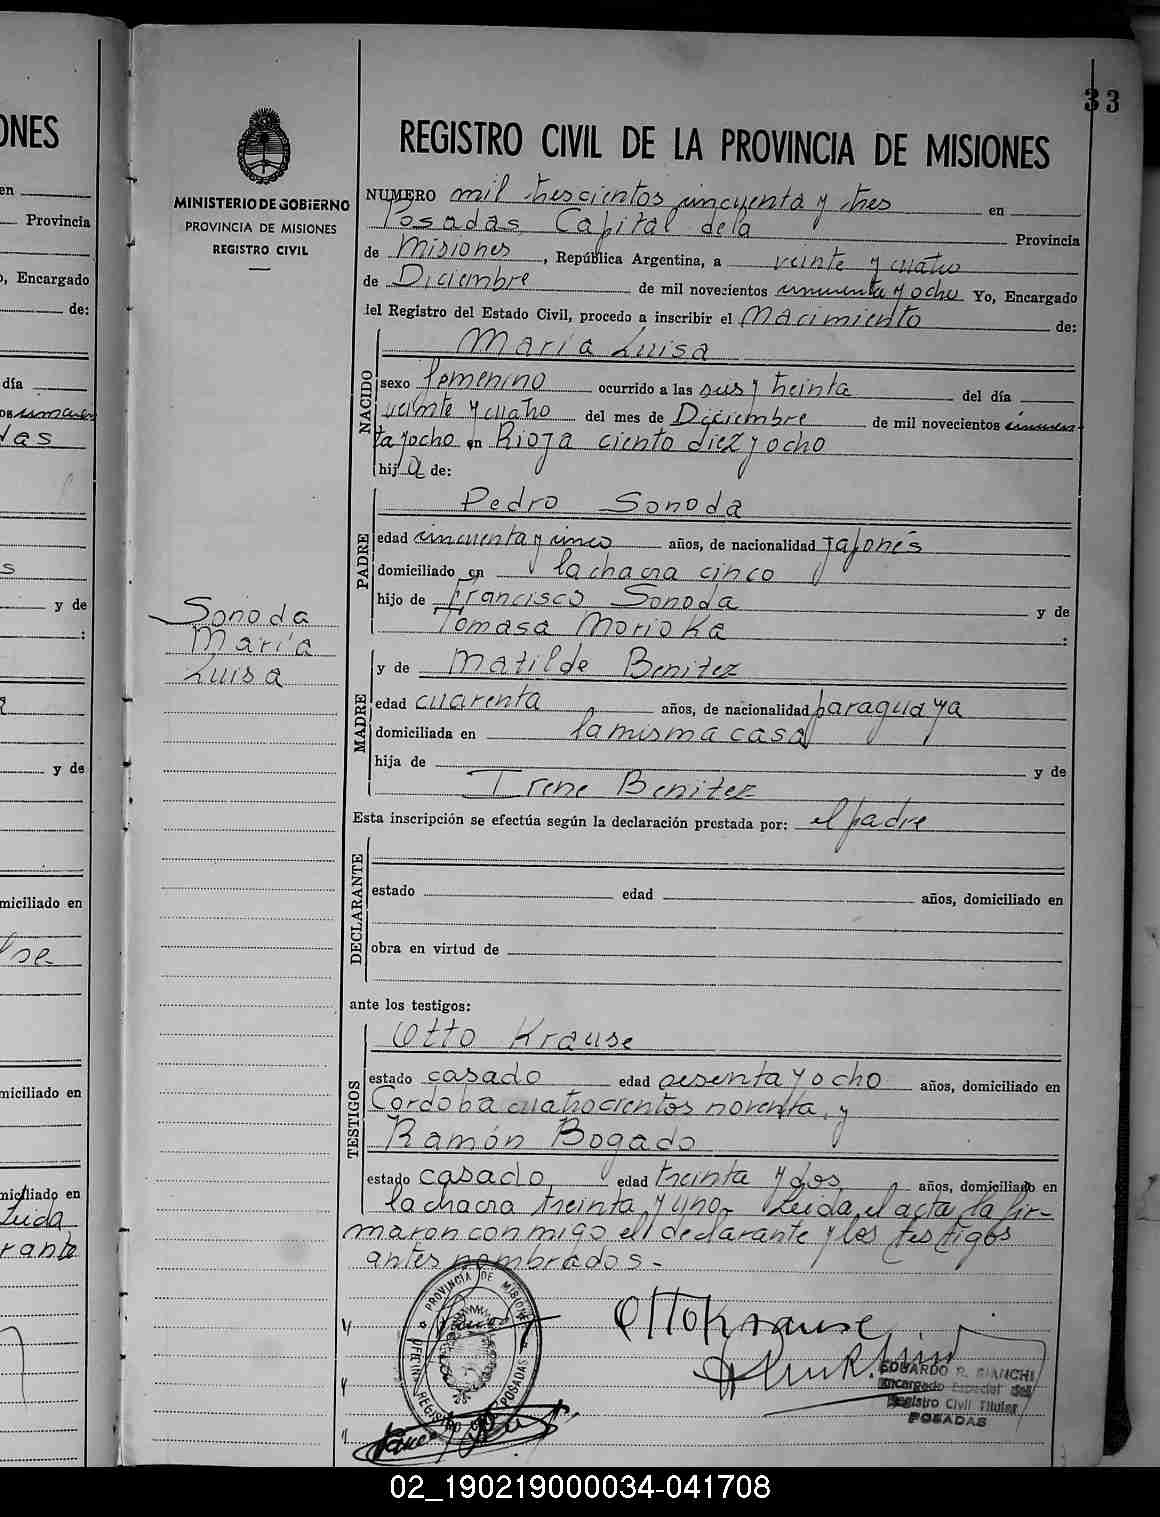 33
ONES
REGISTRO CIVIL DE LA PROVINCIA DE MISIONES
MINISTERIO DE GOBIERNO
PROVINCIA DE MISIONES
REGISTRO CIVIL
en
Provincia
o, Encargado
de:
día
das
s
y de
:
y de
miciliado en
miciliado en
miciliado en
Leida
rante
NUMERO mil trescientos cincuenta y tres en
Posadas, Capital de la Provincia
de Misiones, República Argentina, a veinte y cuatro
de Diciembre de mil novecientos cincuenta y ocho Yo, Encargado
del Registro del Estado Civil, procedo a inscribir el Nacimiento de:
NACIDO
Maria Luisa
sexo femenino ocurrido a las seis y treinta del día
veinte y cuatro del mes de Diciembre de mil novecientos cincuen
ta y ocho en Rioja ciento diez y ocho
hija de:
PADRE
Pedro Sonoda
edad cincuenta y cinco años, de nacionalidad japonés
domiciliado en la chacra cinco
hijo de Francisco Sonoda y de
Tomasa Morioka :
Sonoda
María
Luisa
MADRE
y de Matilde Benitez
edad cuarenta años, de nacionalidad paraguaya
domiciliada en la misma casa
hija de y de
Irene Benitez
Esta inscripción se efectúa según la declaración prestada por: el padre
DECLARANTE
estado edad años, domiciliado en
obra en virtud de
ante los testigos:
TESTIGOS
Otto Krause
estado casado edad sesenta y ocho años, domiciliado en
Cordoba cuatrocientos noventa, y
Ramón Bogado
estado casado edad treinta y dos años, domiciliado en
la chacra treinta y uno - Leida el acta la fir-
maron conmigo el declarante y los testigos
antes nombrados.-
PROVINCIA DE MISIONES
POSADAS
Otto Krause
EDUARDO R. BIANCHI
Encargado Especial del
Registro Civil Titular
POSADAS
02_190219000034-041708